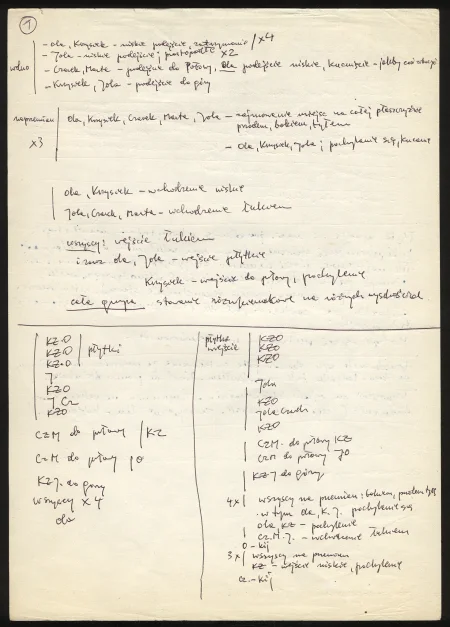 1
- Ola, Krzysiek - niskie podejście, zatrzymanie / x4
- Jola - niskie podejście, x2
wolno
- Czarek, Marta - podejście do połowy, Ola podejście niskie,
- Krzysiek, Jola - podejście do góry
naprzemian
x3
Ola, Krzysiek, Czarek, Marta, Jola - zajmowanie miejsc na całej płaszczyźnie
przodem, bokiem, tyłem
- Ola, Krzysiek, Jola pochylanie się,
Ola, Krzysiek - wchodzenie niskie
Jola, Czarek, Marta - wchodzenie łukiem
wszyscy: wejście łukiem
i raz Ola, Jola - wejście płytkie
Krzysiek - wejście do połowy, pochylenie
cała grupa - stawanie na różnych wysokościach
KZO
KZO
KZO
płytki
J
KZO
J Cz
KZO
CZM do połowy / KZ
CZM do połowy JO
KZJ do góry
wszyscy x 4
Ola
płytkie
wejście
KZO
KZO
KZO
Jola
KZO
Jola Czarek
KZO
CZM. do połowy KZ
CZM do połowy JO
KZJ do góry
4x wszyscy na przemian: bokiem, przodem, tyłem
w tym Ola, K. J. pochylenie się
Ola, KZ - pochylenie
Cz. M. J. - wchodzenie łukiem
O - kij
3x wszyscy na przemian
KZ - wejście niskie, pochylenie
Cz - kij